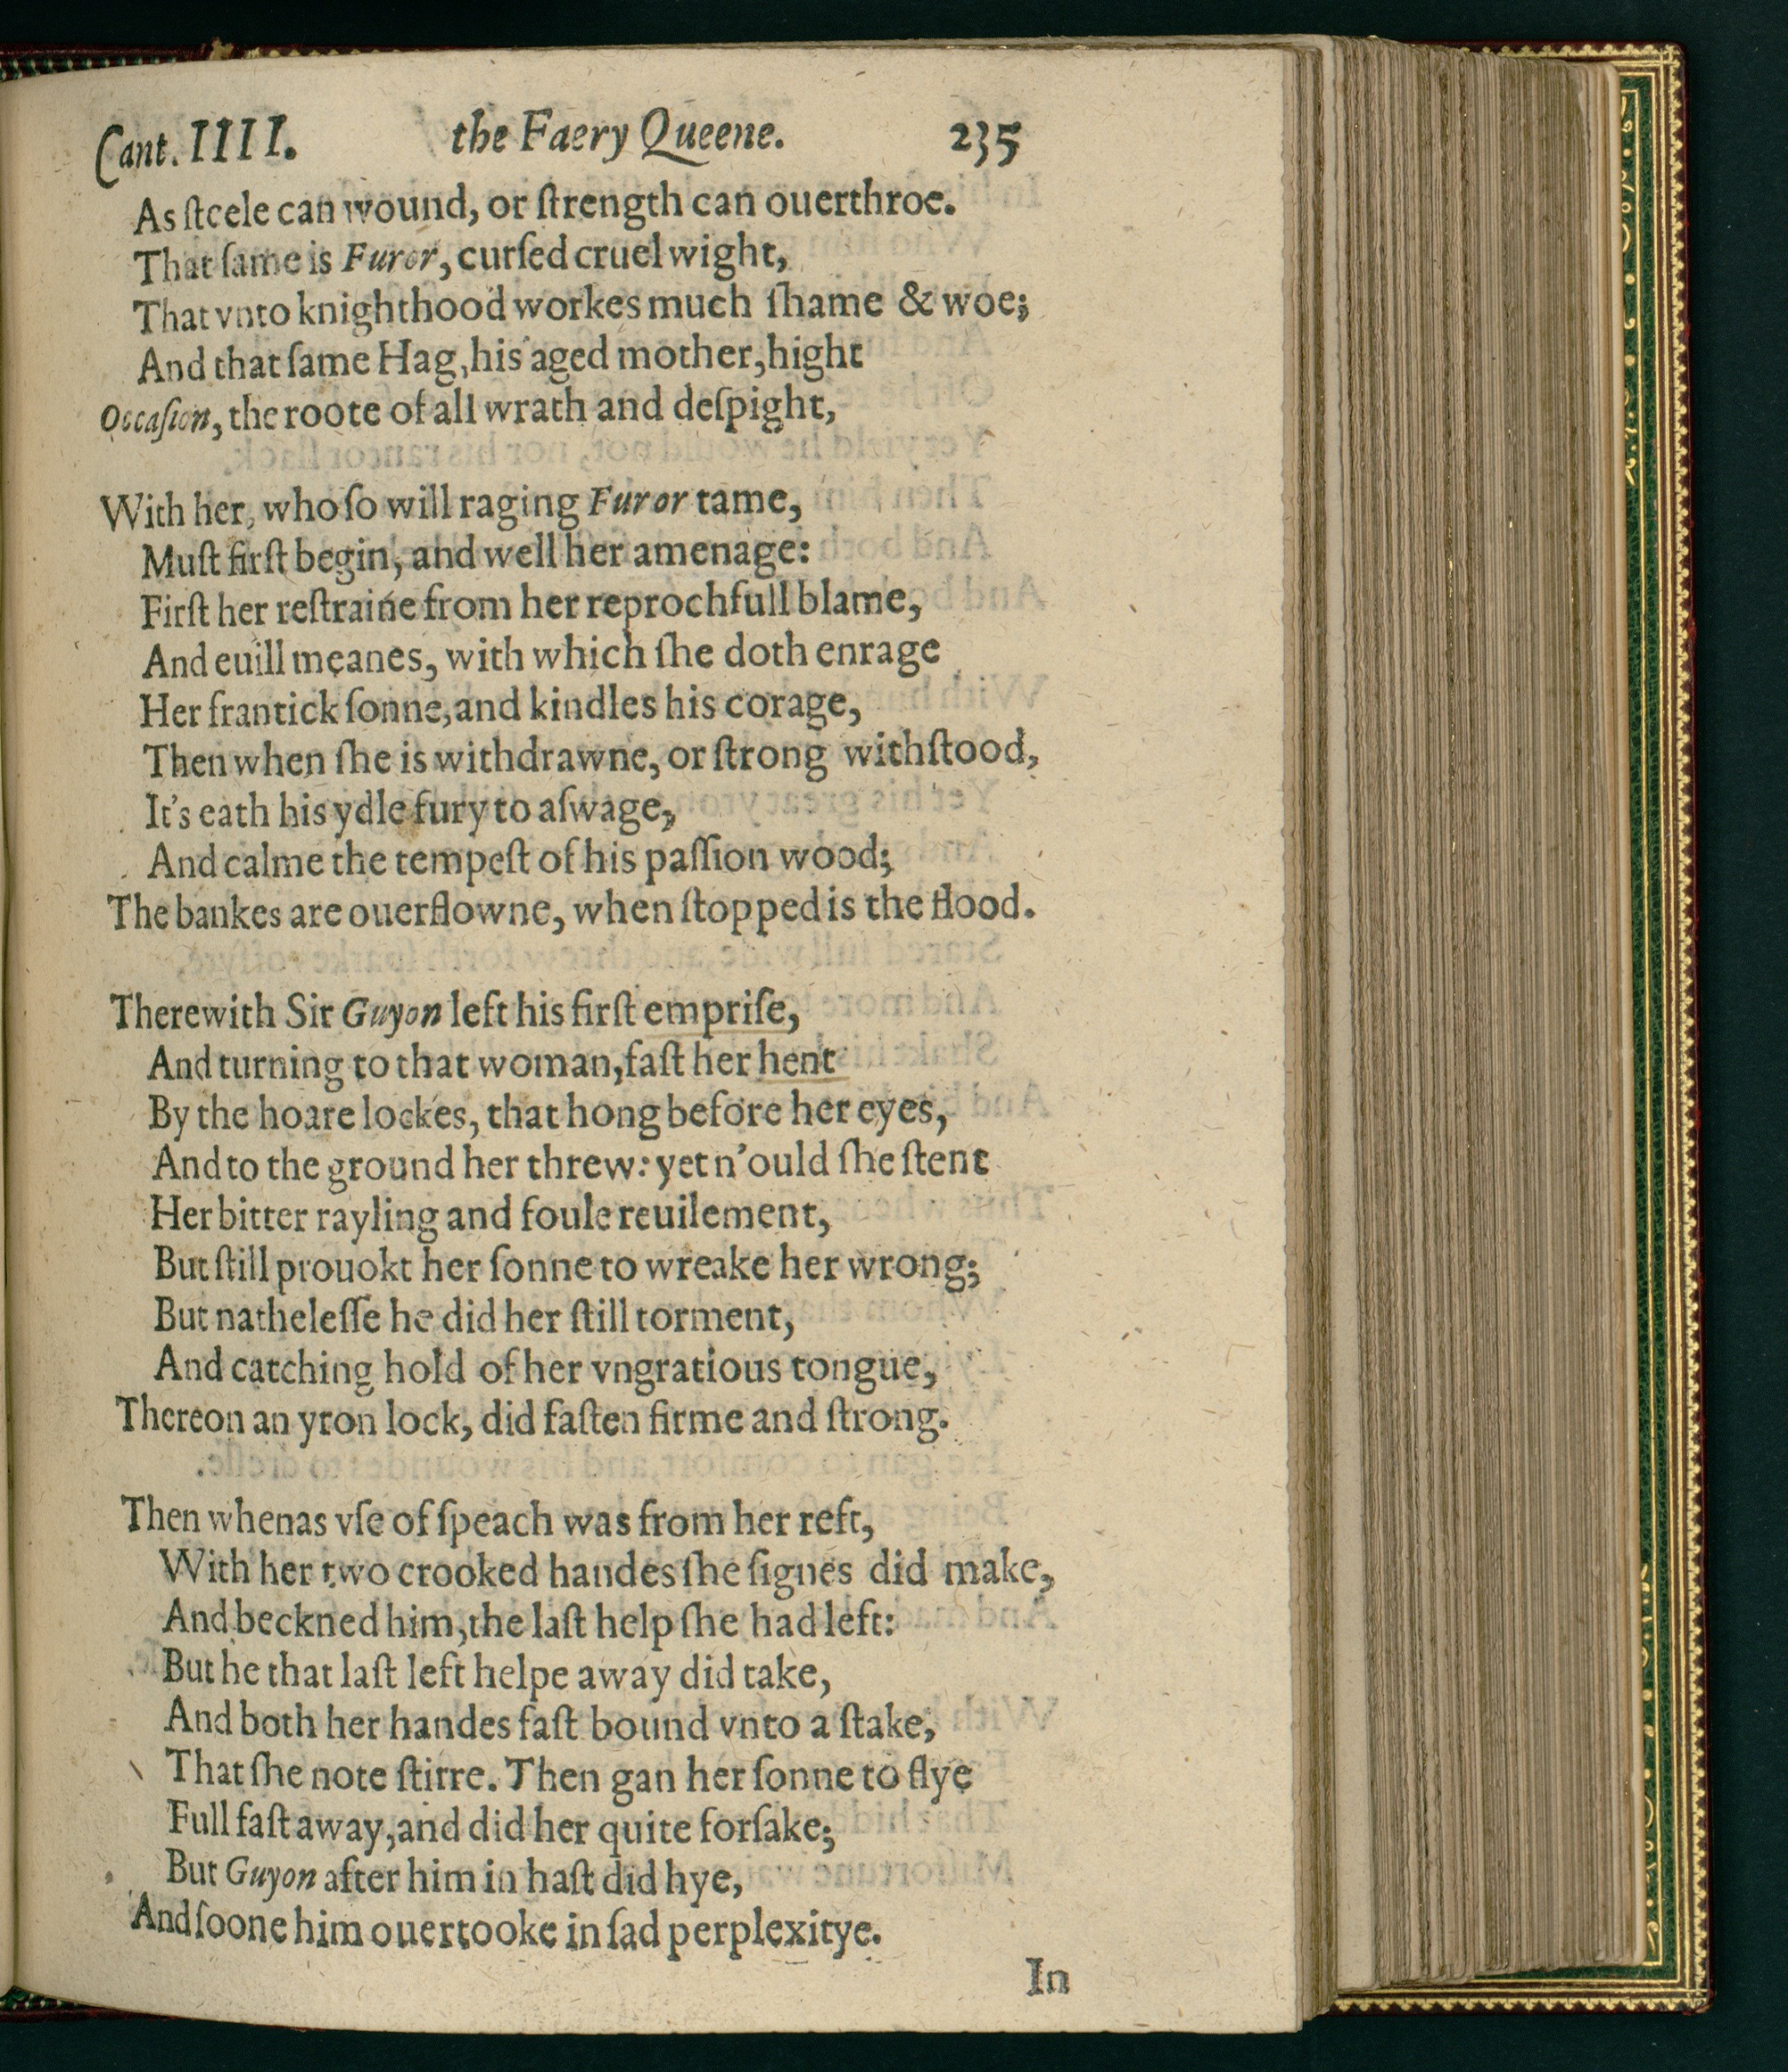 Cant. IIII. the Faery Queene. 235
As ſteele can wound, or ſtrength can ouerthroe.
That ſame is Furor, curſed cruel wight,
That vnto knighthood workes much ſhame & woe;
And that ſame Hag, his aged mother, hight
Occaſion, the roote of all wrath and deſpight,
With her, who ſo will raging Furor tame,
Muſt firſt begin, and well her amenage:
Firſt her reſtraine from her reprochfull blame,
And euill meanes, with which ſhe doth enrage
Her frantick ſonne, and kindles his corage,
Then when ſhe is withdrawne, or ſtrong withſtood,
It's eath his ydle fury to aſwage,
And calme the tempeſt of his paſſion wood;
The bankes are ouerflowne, when ſtopped is the flood.
Therewith Sir Guyon left his firſt empriſe,
And turning to that woman, faſt her hent
By the hoare lockes, that hong before her eyes,
And to the ground her threw: yet n'ould ſhe ſtent
Her bitter rayling and foule reuilement,
But ſtill prouokt her ſonne to wreake her wrong;
But natheleſſe he did her ſtill torment,
And catching hold of her vngratious tongue,
Thereon an yron lock, did faſten firme and ſtrong.
Then whenas vſe of ſpeach was from her reft,
With her two crooked handes ſhe ſignes did make,
And beckned him, the laſt help ſhe had left:
But he that laſt left helpe away did take,
And both her handes faſt bound vnto a ſtake,
That ſhe note ſtirre. Then gan her ſonne to flye
Full faſt away, and did her quite forſake;
But Guyon after him in haſt did hye,
And ſoone him ouertooke in ſad perplexitye.
In